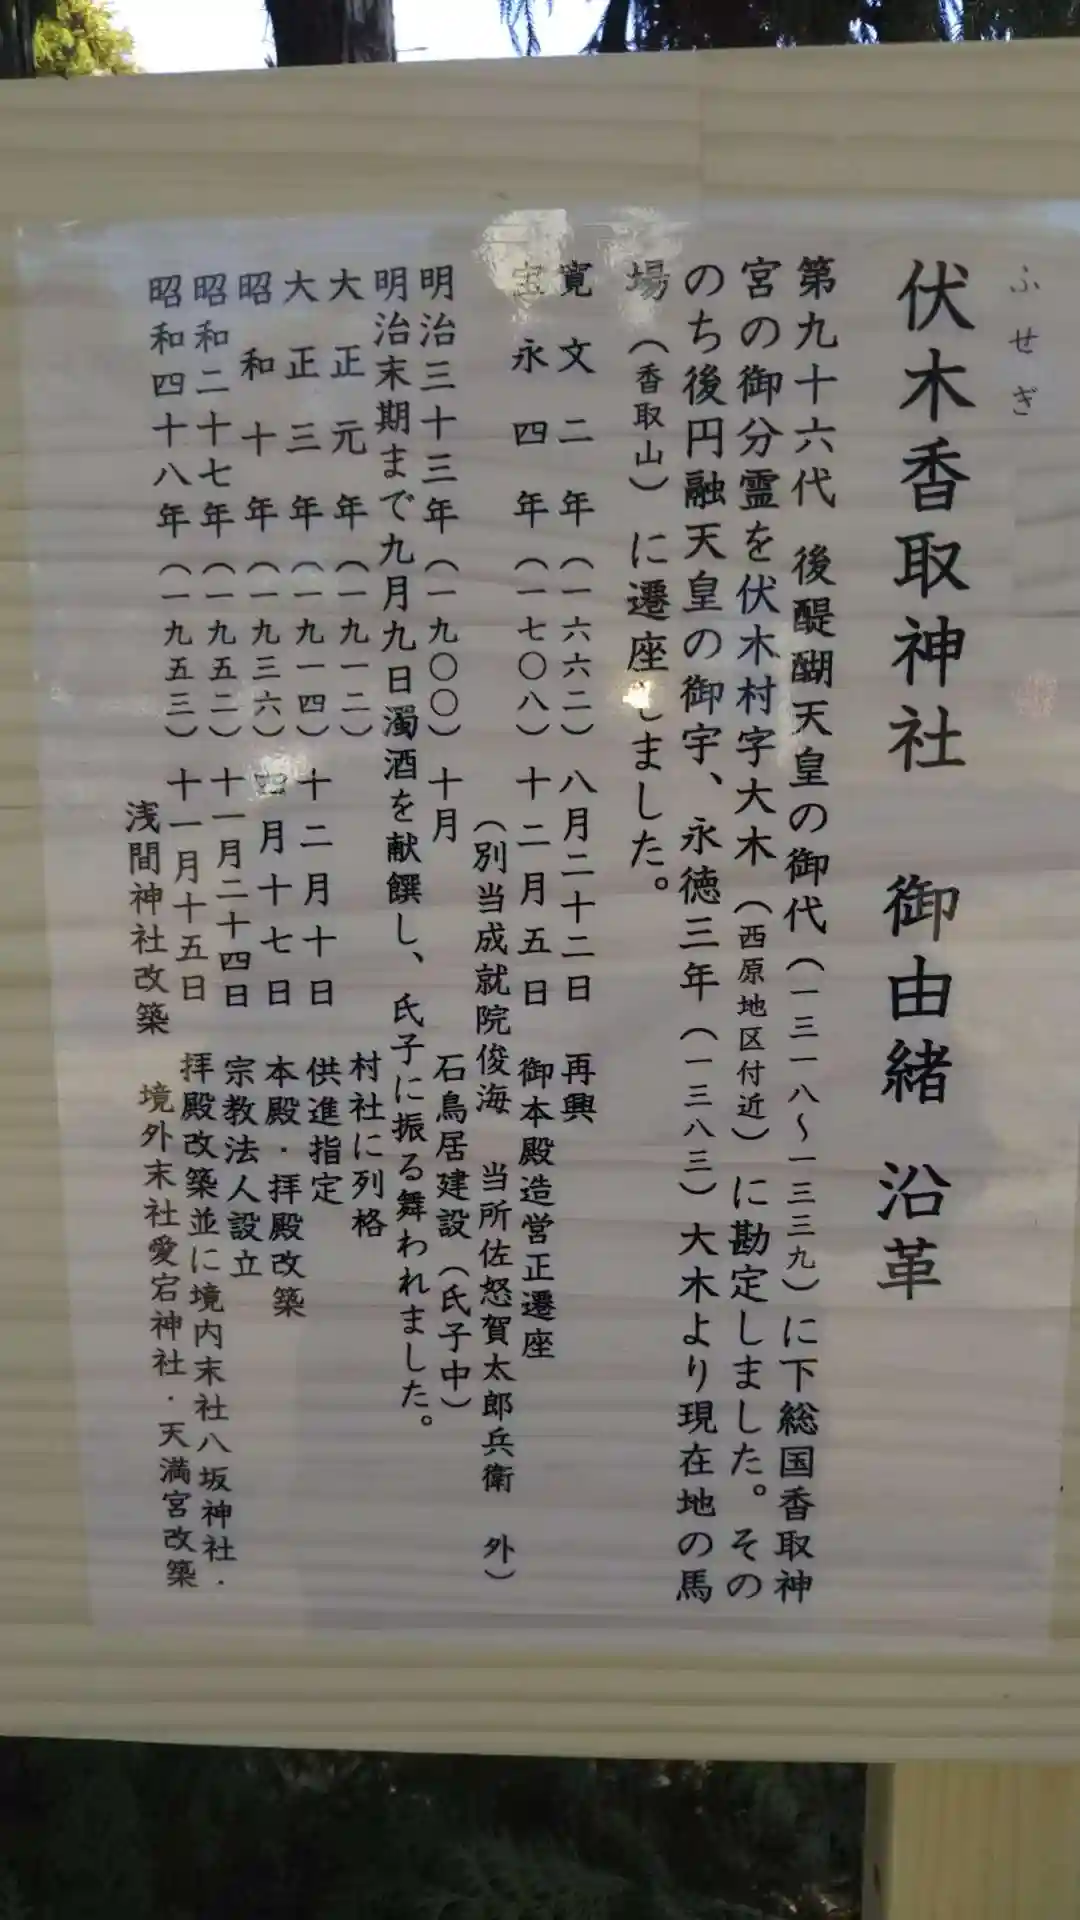 ふせぎ
伏木香取神社 御由緒 沿革
第九十六代 後醍醐天皇の御代(一三一八~一三三九)に下総国香取神
宮の御分霊を伏木村字大木(西原地区付近)に勘定しました。その
のち後円融天皇の御宇、永徳三年(一三八三)大木より現在地の馬
場(香取山)に遷座しました。
寛文二年(一六六二)八月二十二日 再興
宝永四年(一七〇八)十二月五日 御本殿造営正遷座
(別当成就院俊海 当所佐怒賀太郎兵衛 外)
明治三十三年(一九〇〇)十月 石鳥居建設(氏子中)
明治末期まで九月九日濁酒を献饌し、氏子に振る舞われました。
大正元年(一九一二) 村社に列格
大正三年(一九一四)十二月十日 供進指定
昭和十年(一九三六)四月十七日 本殿・拝殿改築
昭和二十七年(一九五二)十一月二十四日 宗教法人設立
昭和四十八年(一九五三)十一月十五日 拝殿改築並に境内末社八坂神社・
浅間神社改築 境外末社愛宕神社・天満宮改築